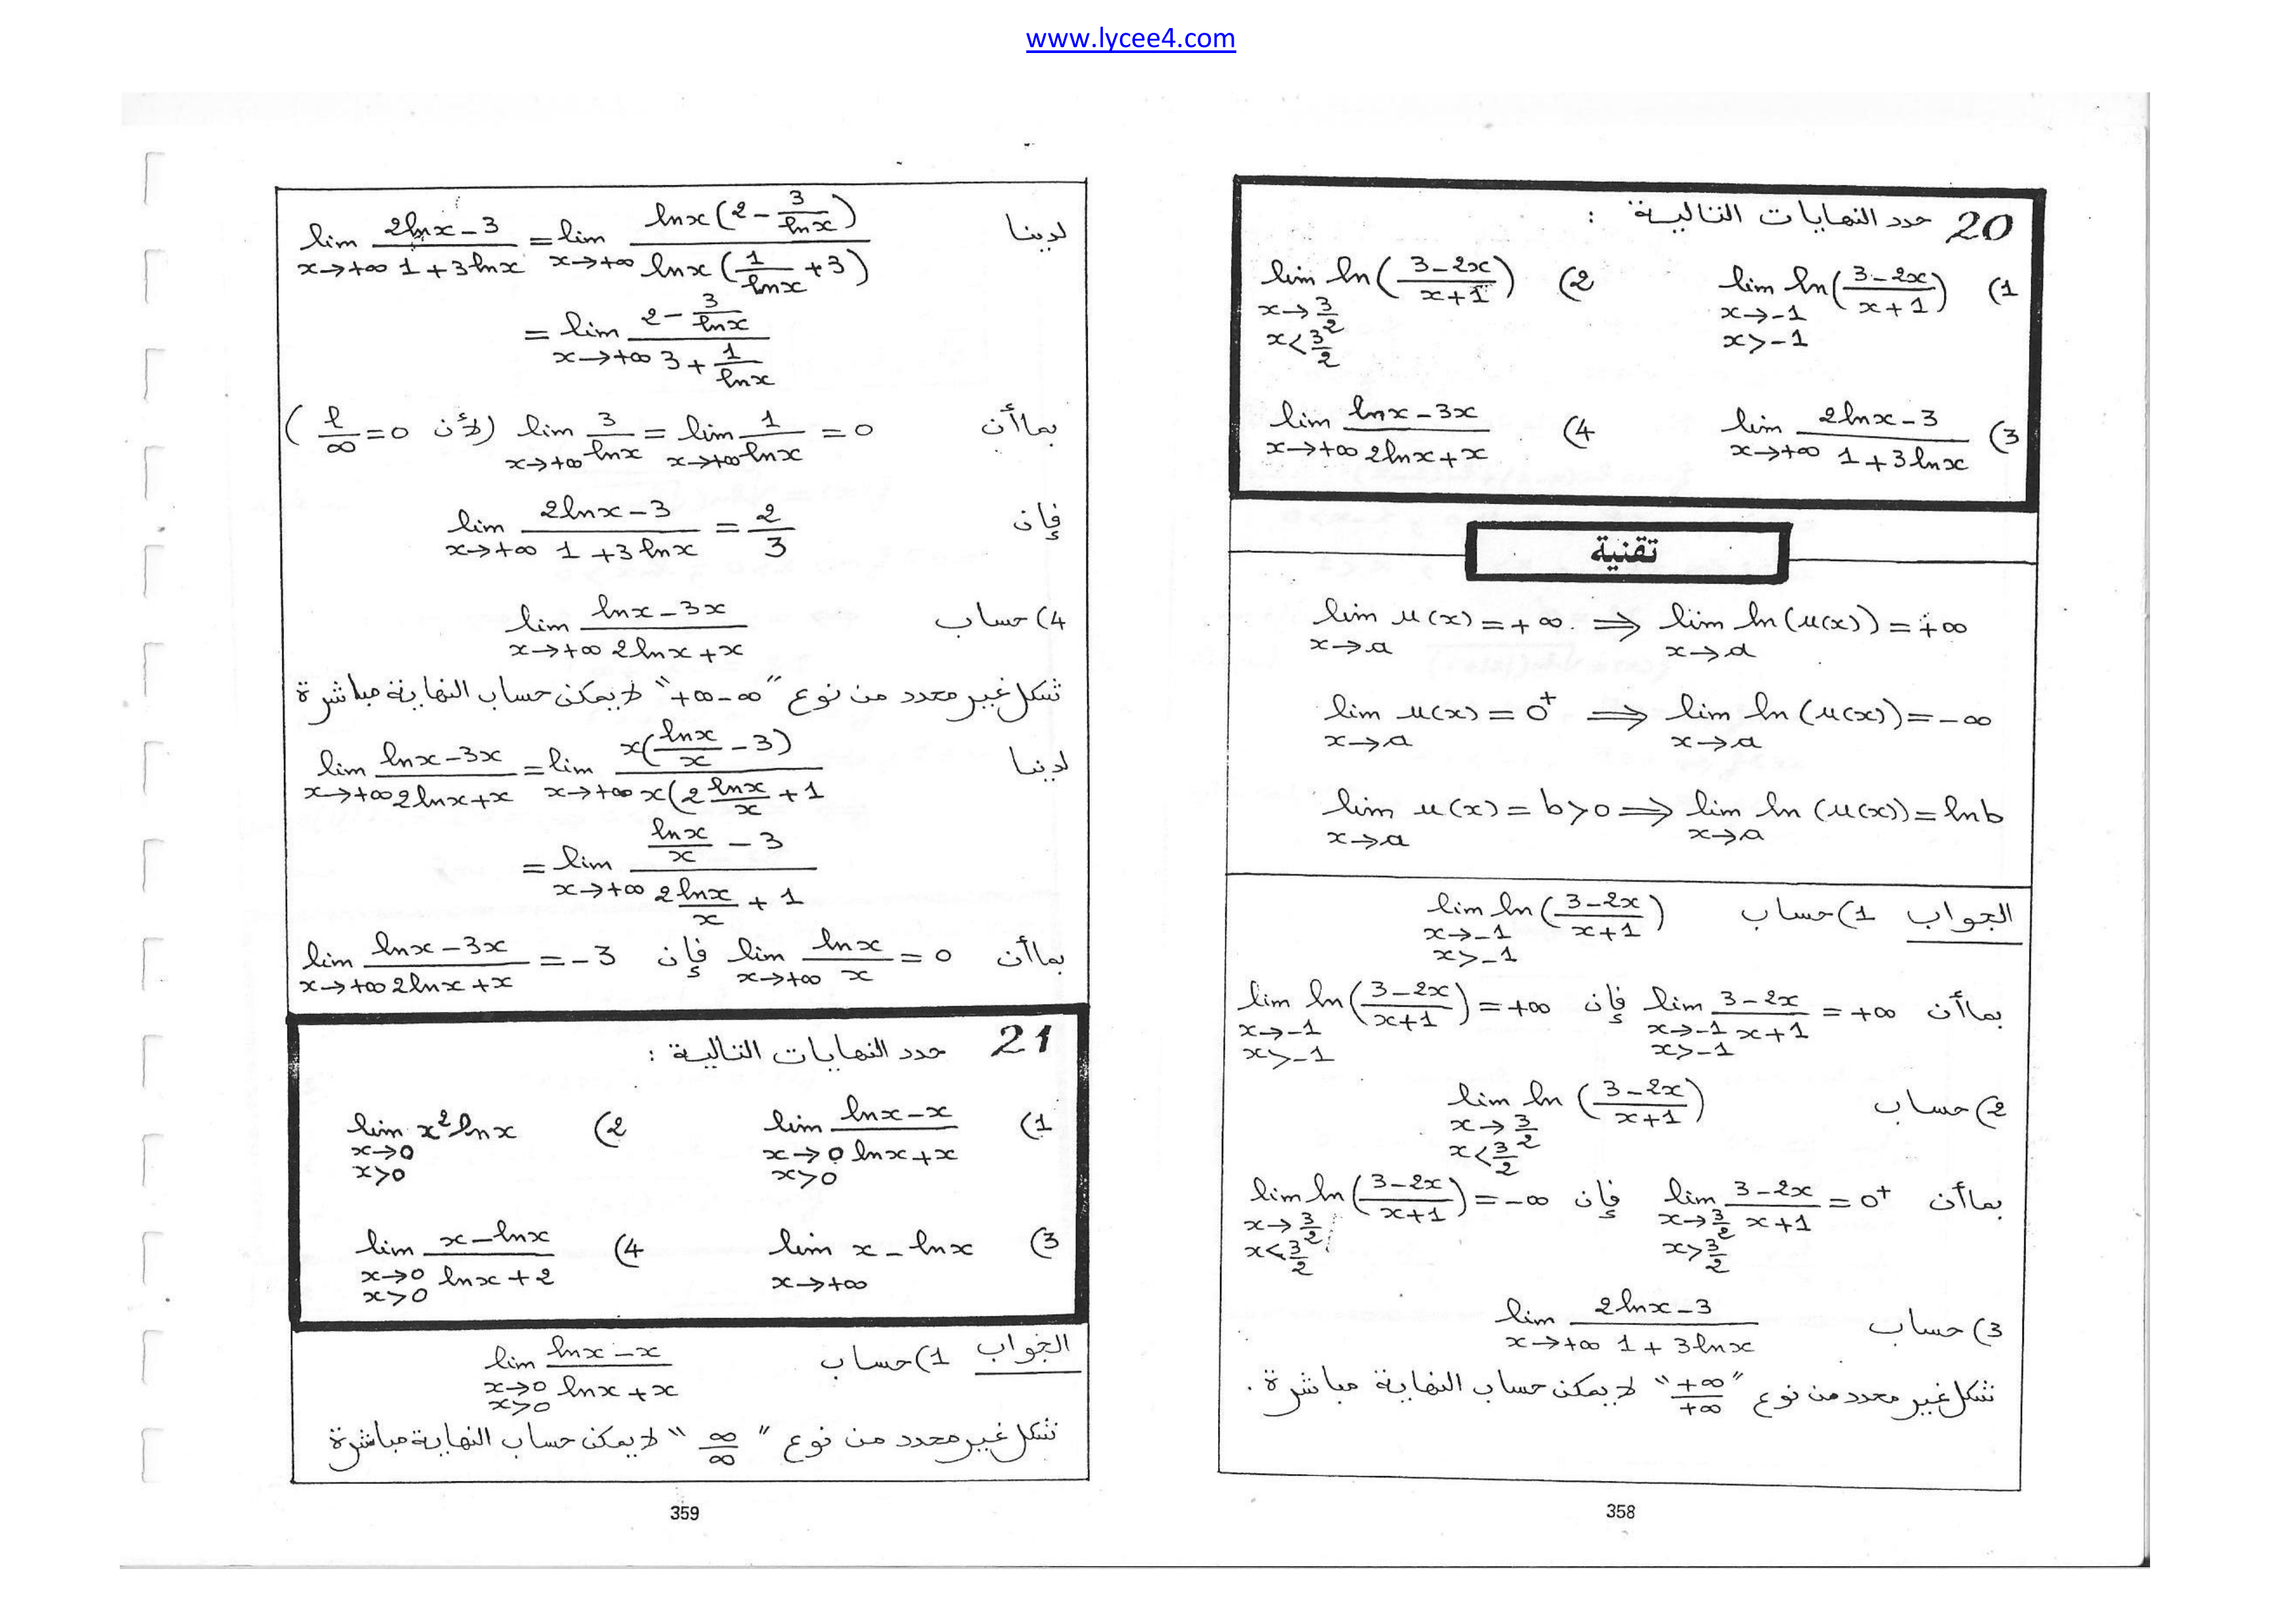 www.lycee4.com
20 حدد النهايات التالية :
1) lim_{x→-1, x>-1} ln((3-2x)/(x+1))   2) lim_{x→3/2, x<3/2} ln((3-2x)/(x+1))
3) lim_{x→+∞} (2lnx-3)/(1+3lnx)   4) lim_{x→+∞} (lnx-3x)/(2lnx+x)
تقنية
lim_{x→a} u(x) = +∞ ⟹ lim_{x→a} ln(u(x)) = +∞
lim_{x→a} u(x) = 0⁺ ⟹ lim_{x→a} ln(u(x)) = -∞
lim_{x→a} u(x) = b>0 ⟹ lim_{x→a} ln(u(x)) = lnb
الجواب 1) حساب lim_{x→-1, x>-1} ln((3-2x)/(x+1))
بما أن lim_{x→-1, x>-1} (3-2x)/(x+1) = +∞ فإن lim_{x→-1, x>-1} ln((3-2x)/(x+1)) = +∞
2) حساب lim_{x→3/2, x<3/2} ln((3-2x)/(x+1))
بما أن lim_{x→3/2, x>3/2} (3-2x)/(x+1) = 0⁺ فإن lim_{x→3/2, x<3/2} ln((3-2x)/(x+1)) = -∞
3) حساب lim_{x→+∞} (2lnx-3)/(1+3lnx)
شكل غير محدد من نوع "+∞/+∞" لا يمكن حساب النهاية مباشرة .
358
لدينا lim_{x→+∞} (2lnx-3)/(1+3lnx) = lim_{x→+∞} (lnx(2-3/lnx))/(lnx(1/lnx+3))
= lim_{x→+∞} (2-3/lnx)/(3+1/lnx)
بما أن lim_{x→+∞} 3/lnx = lim_{x→+∞} 1/lnx = 0 (لأن ℓ/∞ = 0)
فإن lim_{x→+∞} (2lnx-3)/(1+3lnx) = 2/3
4) حساب lim_{x→+∞} (lnx-3x)/(2lnx+x)
شكل غير محدد من نوع "+∞-∞" لا يمكن حساب النهاية مباشرة
لدينا lim_{x→+∞} (lnx-3x)/(2lnx+x) = lim_{x→+∞} (x(lnx/x - 3))/(x(2 lnx/x + 1
= lim_{x→+∞} (lnx/x - 3)/(2lnx/x + 1)
بما أن lim_{x→+∞} lnx/x = 0 فإن lim_{x→+∞} (lnx-3x)/(2lnx+x) = -3
21 حدد النهايات التالية :
1) lim_{x→0, x>0} (lnx-x)/(lnx+x)   2) lim_{x→0, x>0} x²lnx
3) lim_{x→+∞} x-lnx   4) lim_{x→0, x>0} (x-lnx)/(lnx+2)
الجواب 1) حساب lim_{x→0, x>0} (lnx-x)/(lnx+x)
شكل غير محدد من نوع "∞/∞" لا يمكن حساب النهاية مباشرة
359